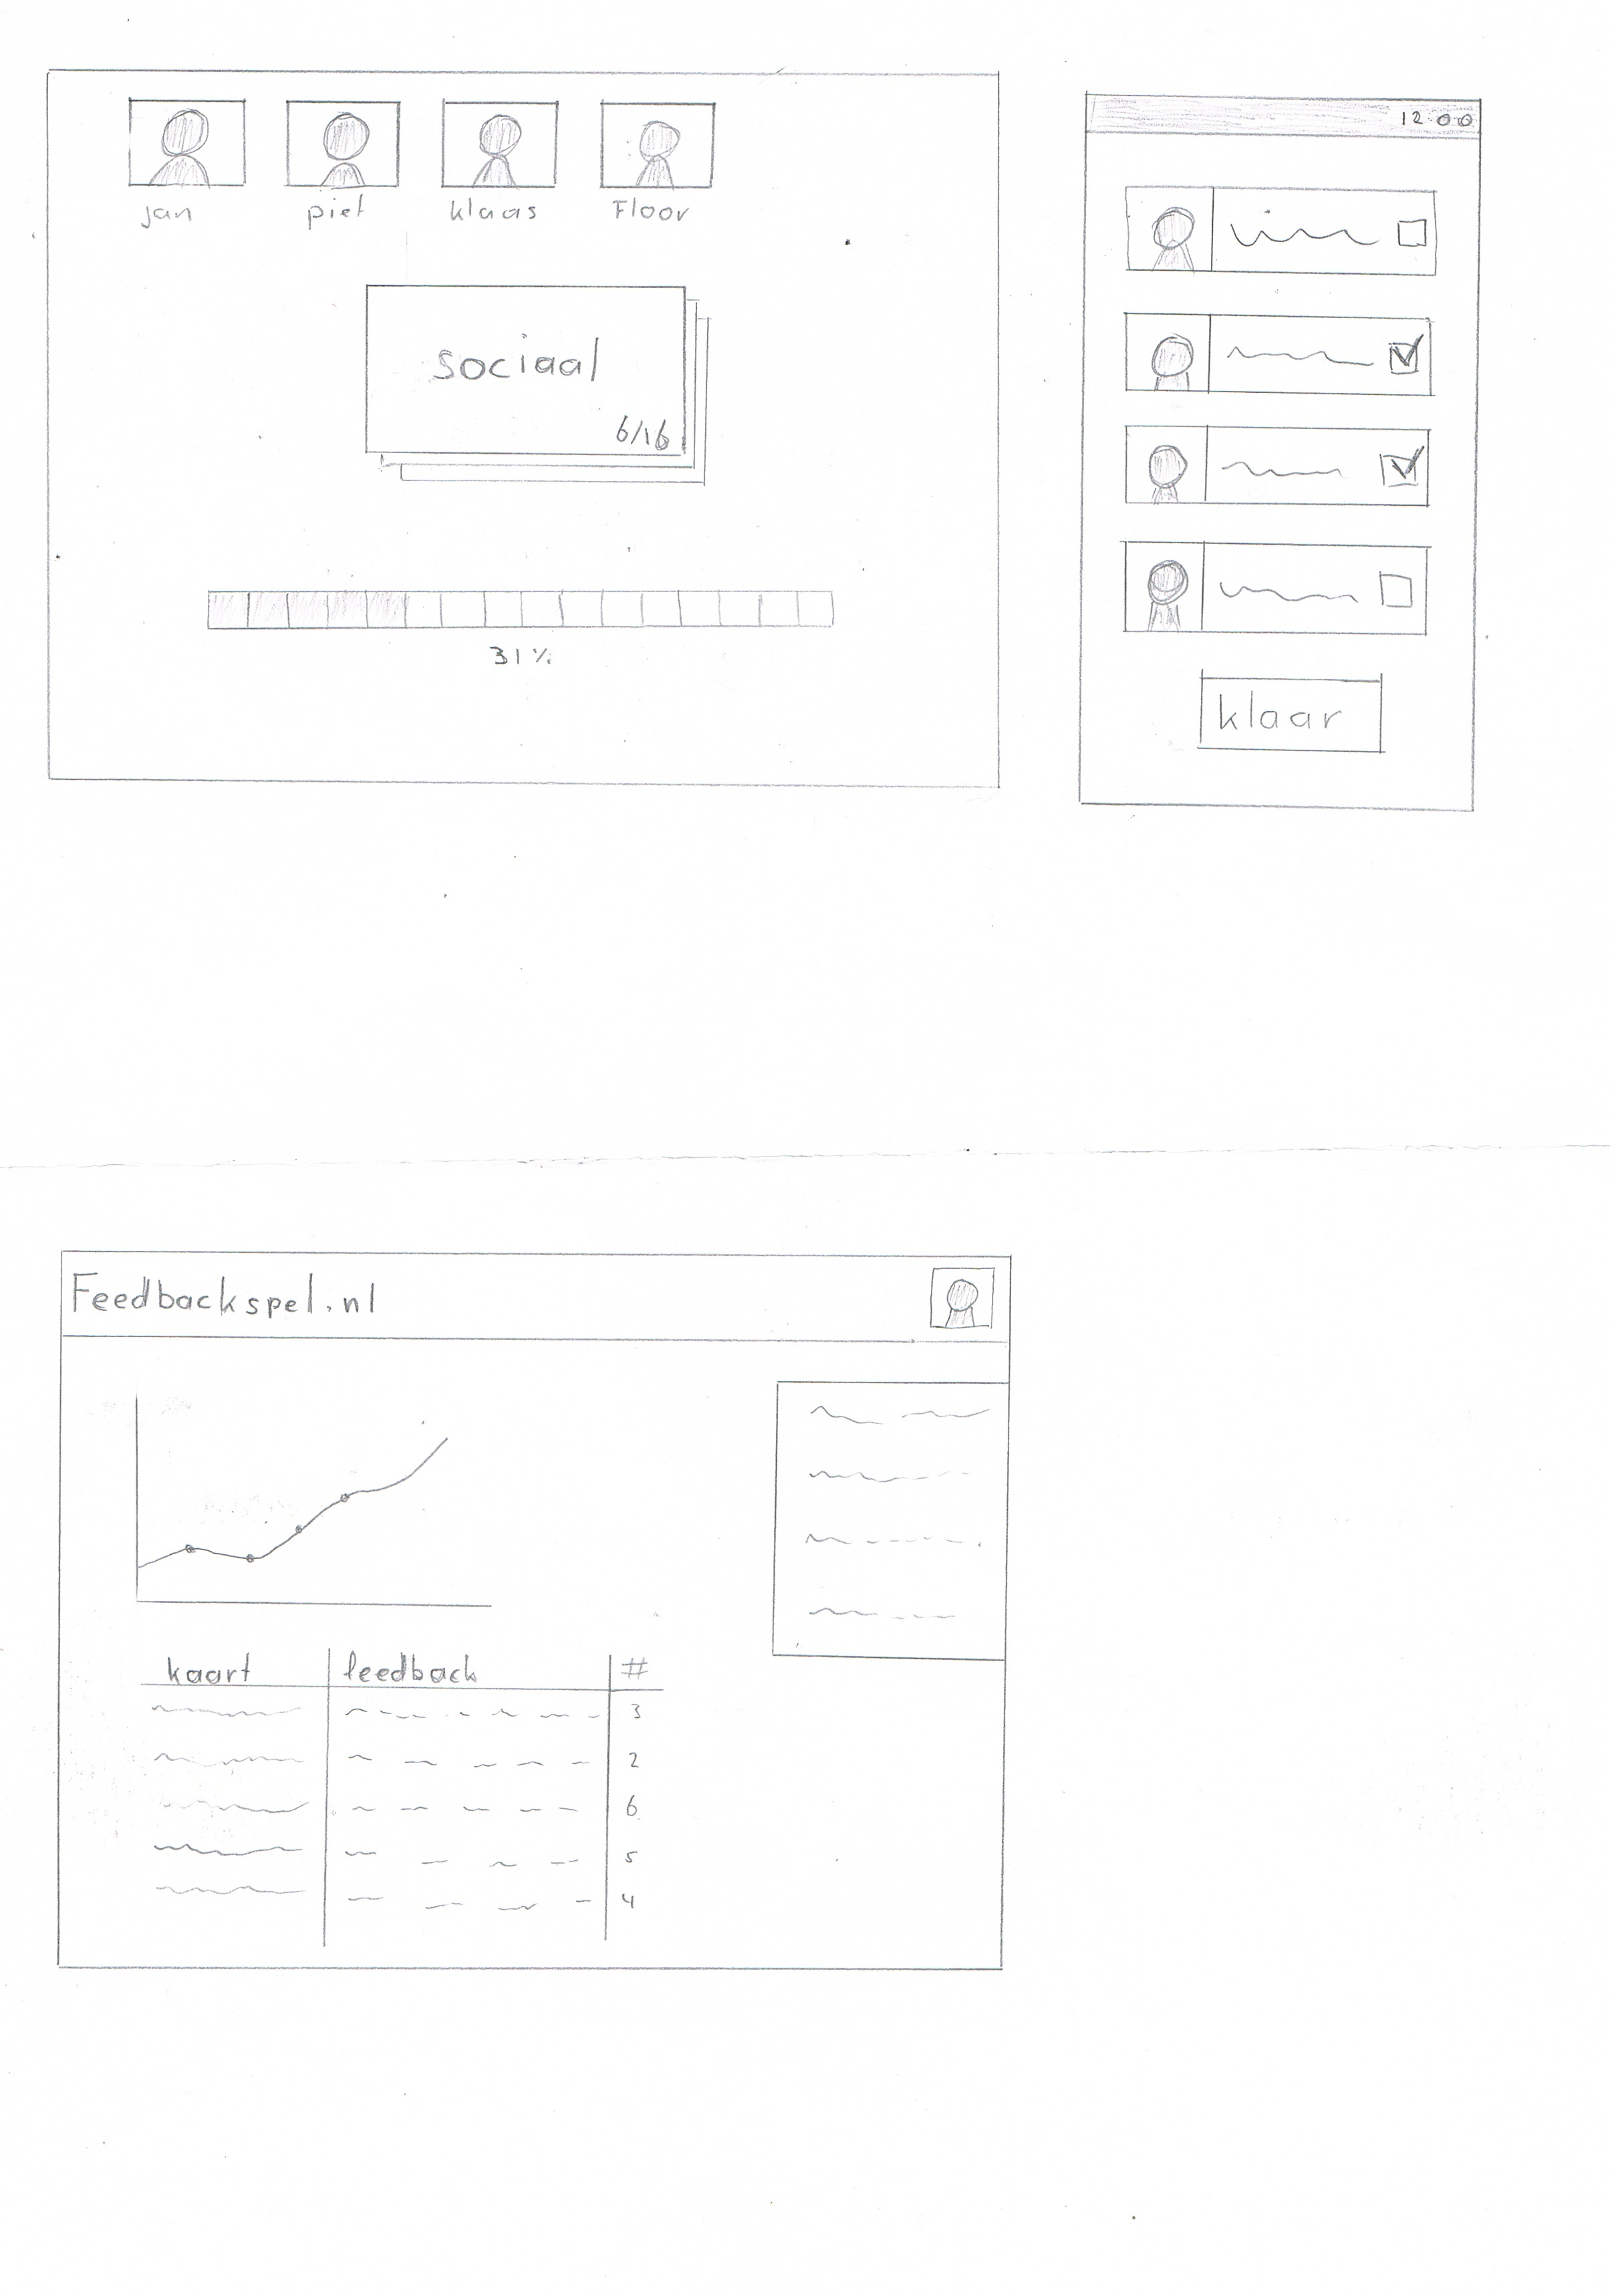 jan piet klaas Floor
sociaal
6/16
31%
12:00
klaar
Feedbackspel.nl
kaart feedback #
3
2
6
5
4